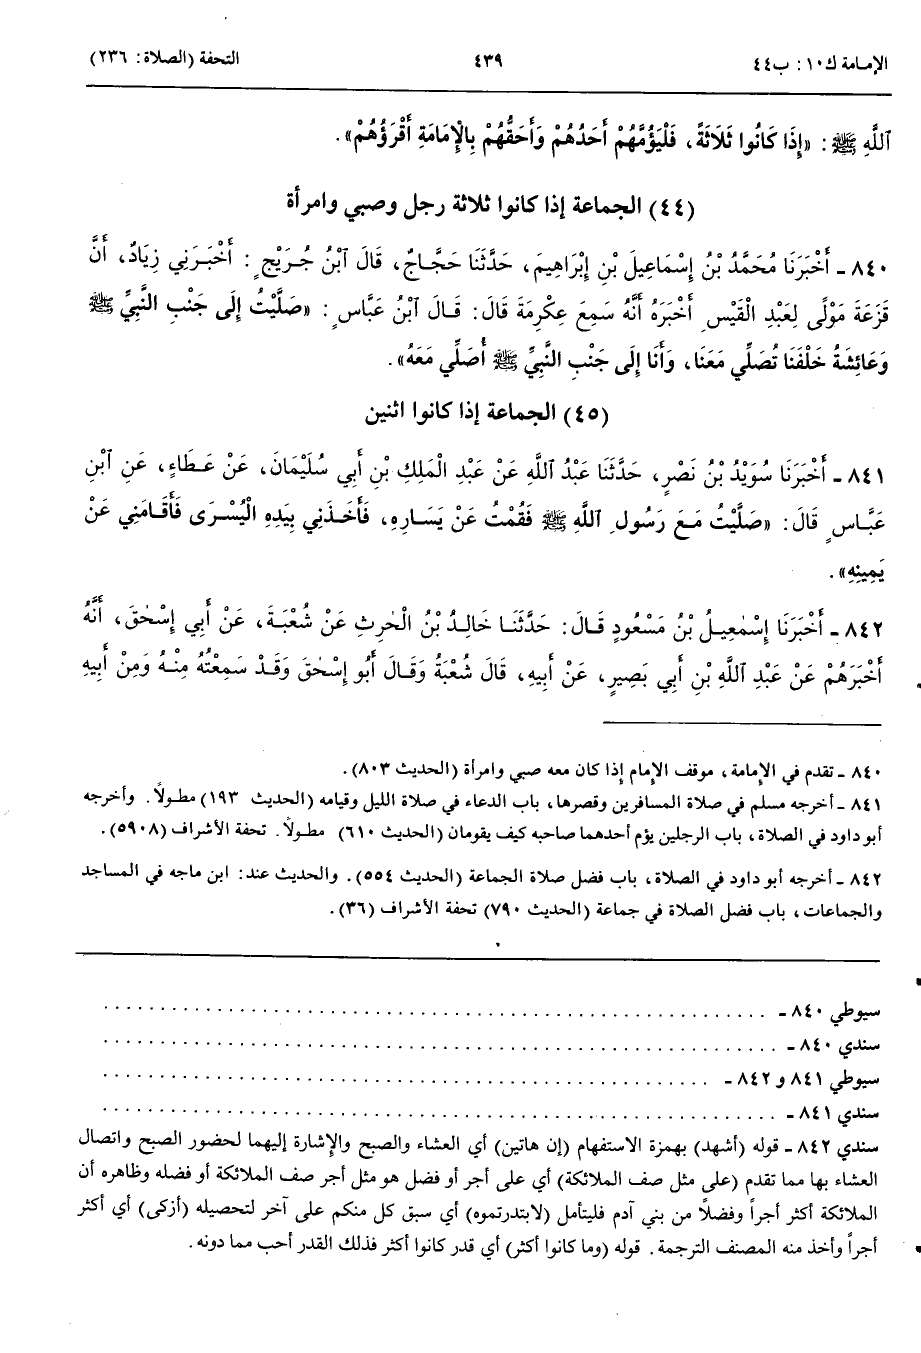 الإمامة ك١٠: ب٤٤ ٤٣٩ التحفة (الصلاة: ٢٣٦)
ٱللَّهِ ﷺ: «إِذَا كَانُوا ثَلَاثَةً، فَلْيَؤُمَّهُمْ أَحَدُهُمْ وَأَحَقُّهُمْ بِالْإِمَامَةِ أَقْرَؤُهُمْ».
(٤٤) الجماعة إذا كانوا ثلاثة رجل وصبي وامرأة
٨٤٠ ـ أَخْبَرَنَا مُحَمَّدُ بْنُ إِسْمَاعِيلَ بْنِ إِبْرَاهِيمَ، حَدَّثَنَا حَجَّاجٌ، قَالَ ٱبْنُ جُرَيْجٍ: أَخْبَرَنِي زِيَادٌ، أَنَّ
قَزَعَةَ مَوْلًى لِعَبْدِ الْقَيْسِ أَخْبَرَهُ أَنَّهُ سَمِعَ عِكْرِمَةَ قَالَ: قَالَ ٱبْنُ عَبَّاسٍ: «صَلَّيْتُ إِلَى جَنْبِ النَّبِيِّ ﷺ
وَعَائِشَةُ خَلْفَنَا تُصَلِّي مَعَنَا، وَأَنَا إِلَى جَنْبِ النَّبِيِّ ﷺ أُصَلِّي مَعَهُ».
(٤٥) الجماعة إذا كانوا اثنين
٨٤١ ـ أَخْبَرَنَا سُوَيْدُ بْنُ نَصْرٍ، حَدَّثَنَا عَبْدُ ٱللَّهِ عَنْ عَبْدِ الْمَلِكِ بْنِ أَبِي سُلَيْمَانَ، عَنْ عَطَاءٍ، عَنِ ٱبْنِ
عَبَّاسٍ قَالَ: «صَلَّيْتُ مَعَ رَسُولِ ٱللَّهِ ﷺ فَقُمْتُ عَنْ يَسَارِهِ، فَأَخَذَنِي بِيَدِهِ الْيُسْرَى فَأَقَامَنِي عَنْ
يَمِينِهِ».
٨٤٢ ـ أَخْبَرَنَا إِسْمٰعِيلُ بْنُ مَسْعُودٍ قَالَ: حَدَّثَنَا خَالِدُ بْنُ الْحٰرِثِ عَنْ شُعْبَةَ، عَنْ أَبِي إِسْحٰقَ، أَنَّهُ
أَخْبَرَهُمْ عَنْ عَبْدِ ٱللَّهِ بْنِ أَبِي بَصِيرٍ، عَنْ أَبِيهِ، قَالَ شُعْبَةُ وَقَالَ أَبُو إِسْحٰقَ وَقَدْ سَمِعْتُهُ مِنْهُ وَمِنْ أَبِيهِ
٨٤٠ ـ تقدم في الإمامة، موقف الإمام إذا كان معه صبي وامرأة (الحديث ٨٠٣).
٨٤١ ـ أخرجه مسلم في صلاة المسافرين وقصرها، باب الدعاء في صلاة الليل وقيامه (الحديث ١٩٣) مطولًا. وأخرجه
أبو داود في الصلاة، باب الرجلين يؤم أحدهما صاحبه كيف يقومان (الحديث ٦١٠) مطولًا. تحفة الأشراف (٥٩٠٨).
٨٤٢ ـ أخرجه أبو داود في الصلاة، باب فضل صلاة الجماعة (الحديث ٥٥٤). والحديث عند: ابن ماجه في المساجد
والجماعات، باب فضل الصلاة في جماعة (الحديث ٧٩٠) تحفة الأشراف (٣٦).
سيوطي ٨٤٠ ـ . . . . . . . . . . . . . . . . . . . .
سندي ٨٤٠ ـ . . . . . . . . . . . . . . . . . . . .
سيوطي ٨٤١ و ٨٤٢ ـ . . . . . . . . . . . . . . . . . . . .
سندي ٨٤١ ـ . . . . . . . . . . . . . . . . . . . .
سندي ٨٤٢ ـ قوله (أشهد) بهمزة الاستفهام (إن هاتين) أي العشاء والصبح والإشارة إليهما لحضور الصبح واتصال
العشاء بها مما تقدم (على مثل صف الملائكة) أي على أجر أو فضل هو مثل أجر صف الملائكة أو فضله وظاهره أن
الملائكة أكثر أجراً وفضلًا من بني آدم فليتأمل (لابتدرتموه) أي سبق كل منكم على آخر لتحصيله (أزكى) أي أكثر
أجراً وأخذ منه المصنف الترجمة. قوله (وما كانوا أكثر) أي قدر كانوا أكثر فذلك القدر أحب مما دونه.